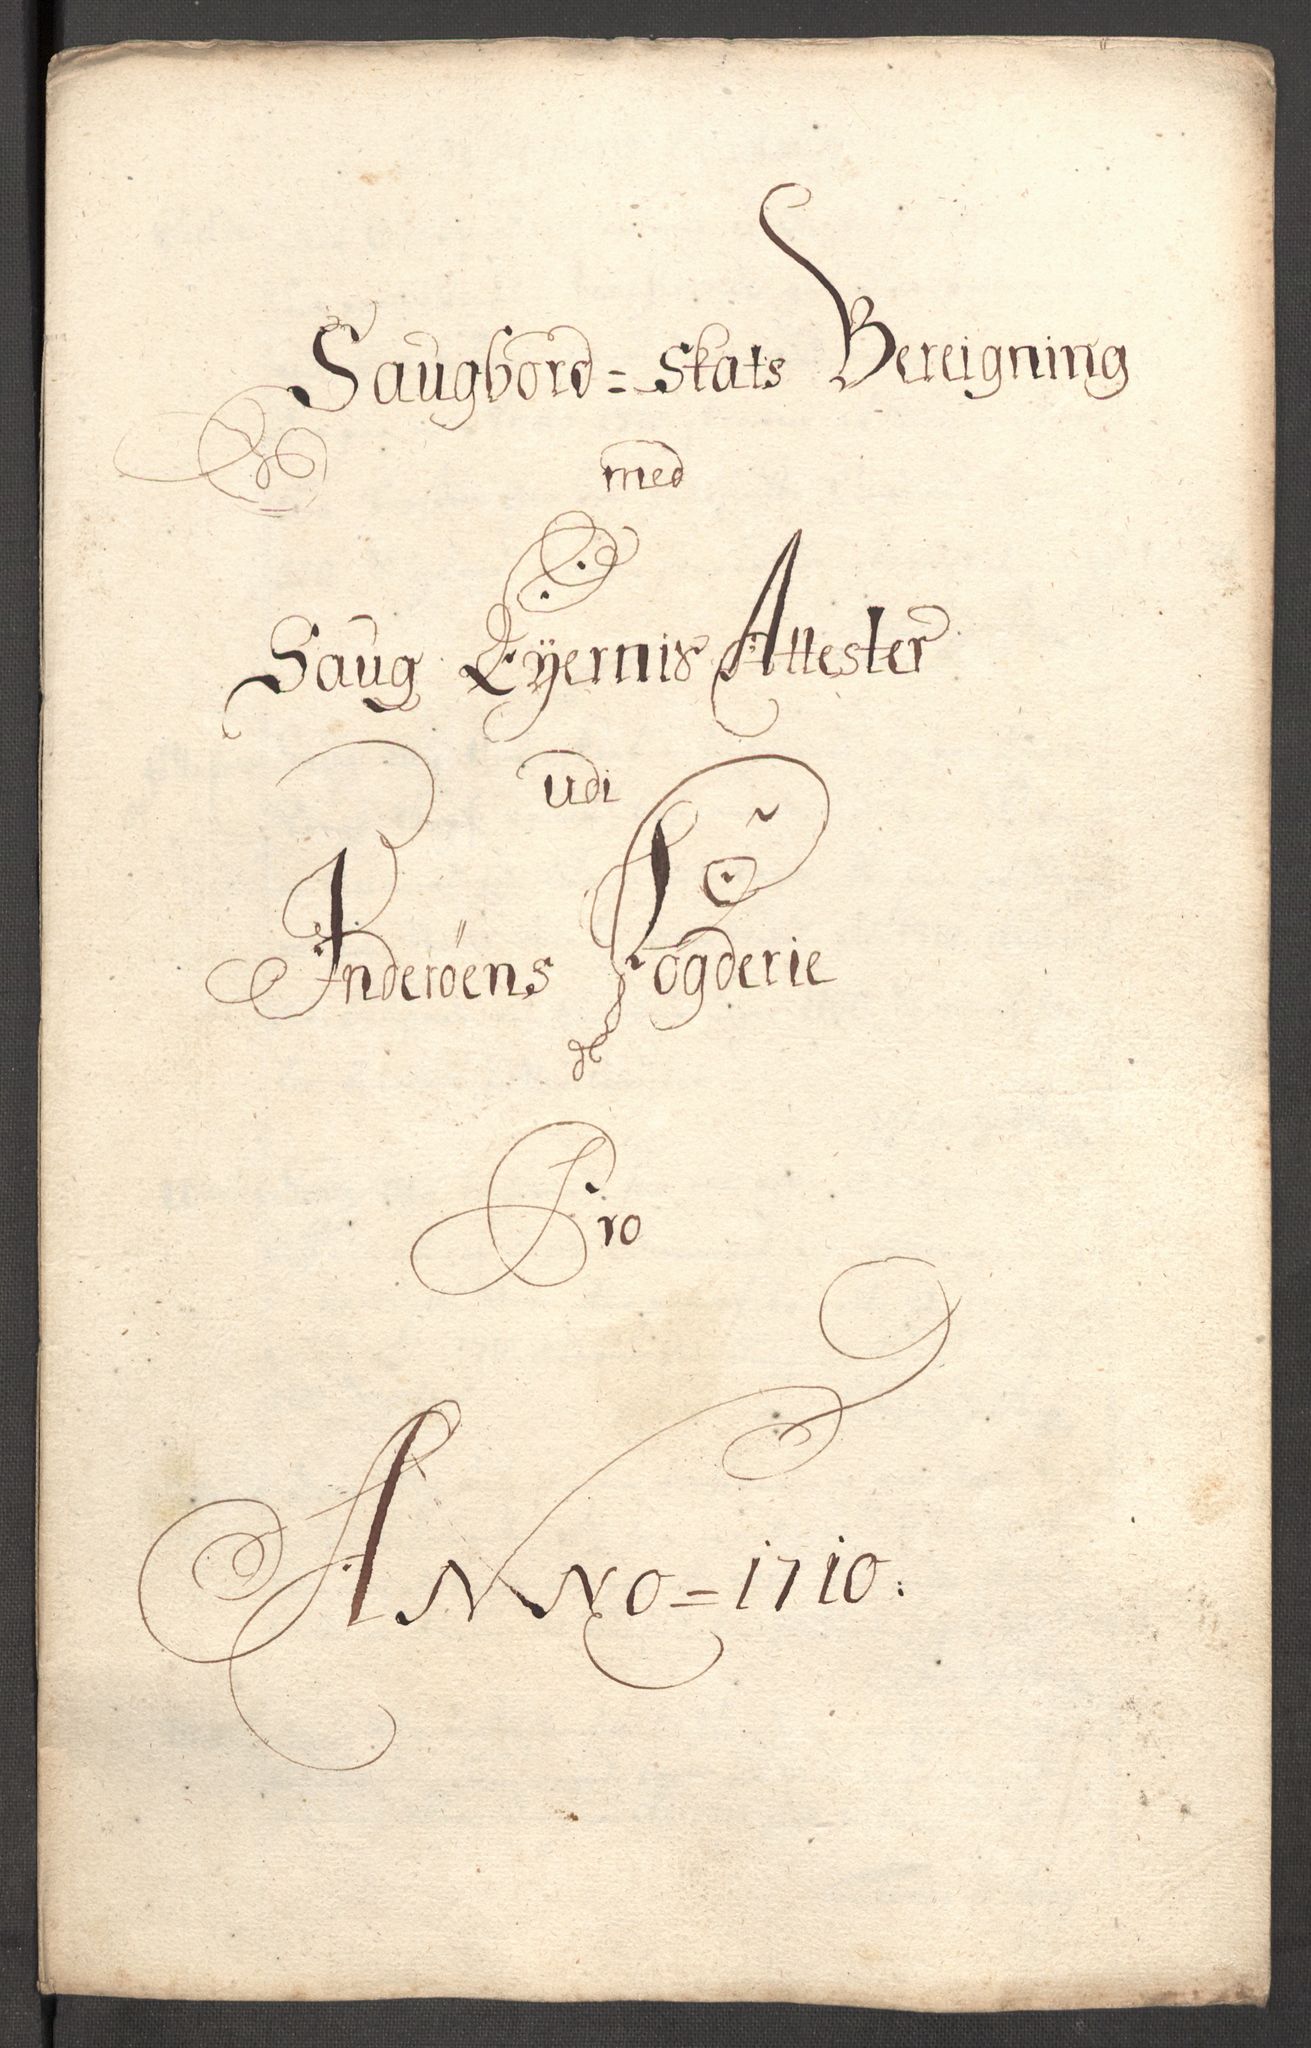 Saugbord = Skats Bereigning
med
Saug Eÿernis Attester
udi
Inderöens Fogderie
Pro
ANNO = 1710.